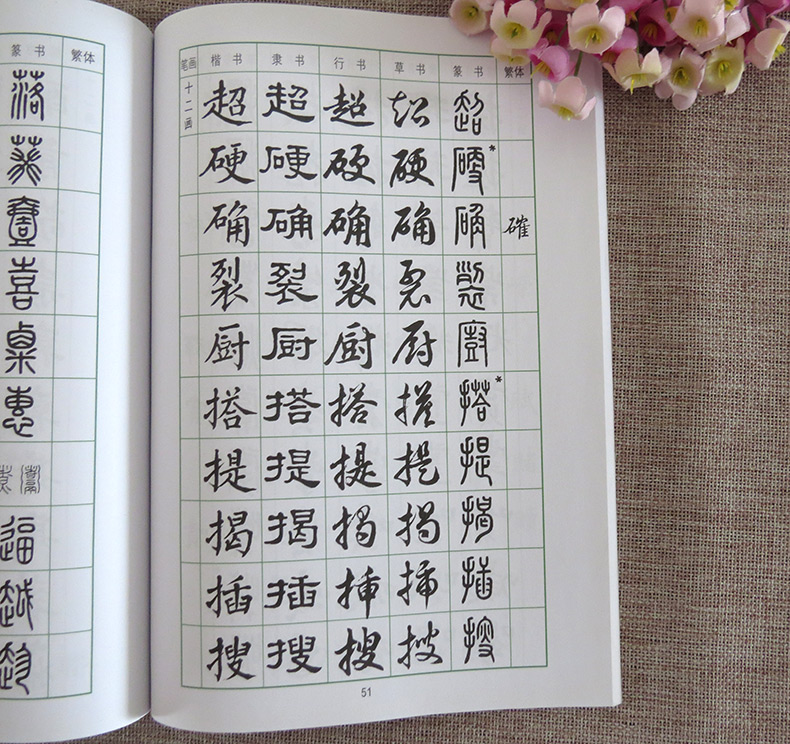 篆书 繁体
落
葬
賽
喜
桌
惠
逼
越
趋
笔画 楷书 隶书 行书 草书 篆书 繁体
十二画 超 超 超 超 超
硬 硬 硬 硬 硬*
确 确 确 确 确 確
裂 裂 裂 裂 裂
厨 厨 厨 厨 廚
搭 搭 搭 搭 搭*
提 提 提 提 提
揭 揭 揭 揭 揭
插 插 插 插 插
搜 搜 搜 搜 搜
51